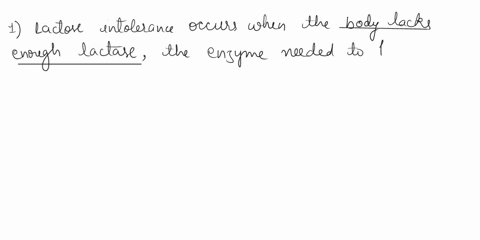 1) Lactose intolerance occurs when the body lacks
enough lactase, the enzyme needed to